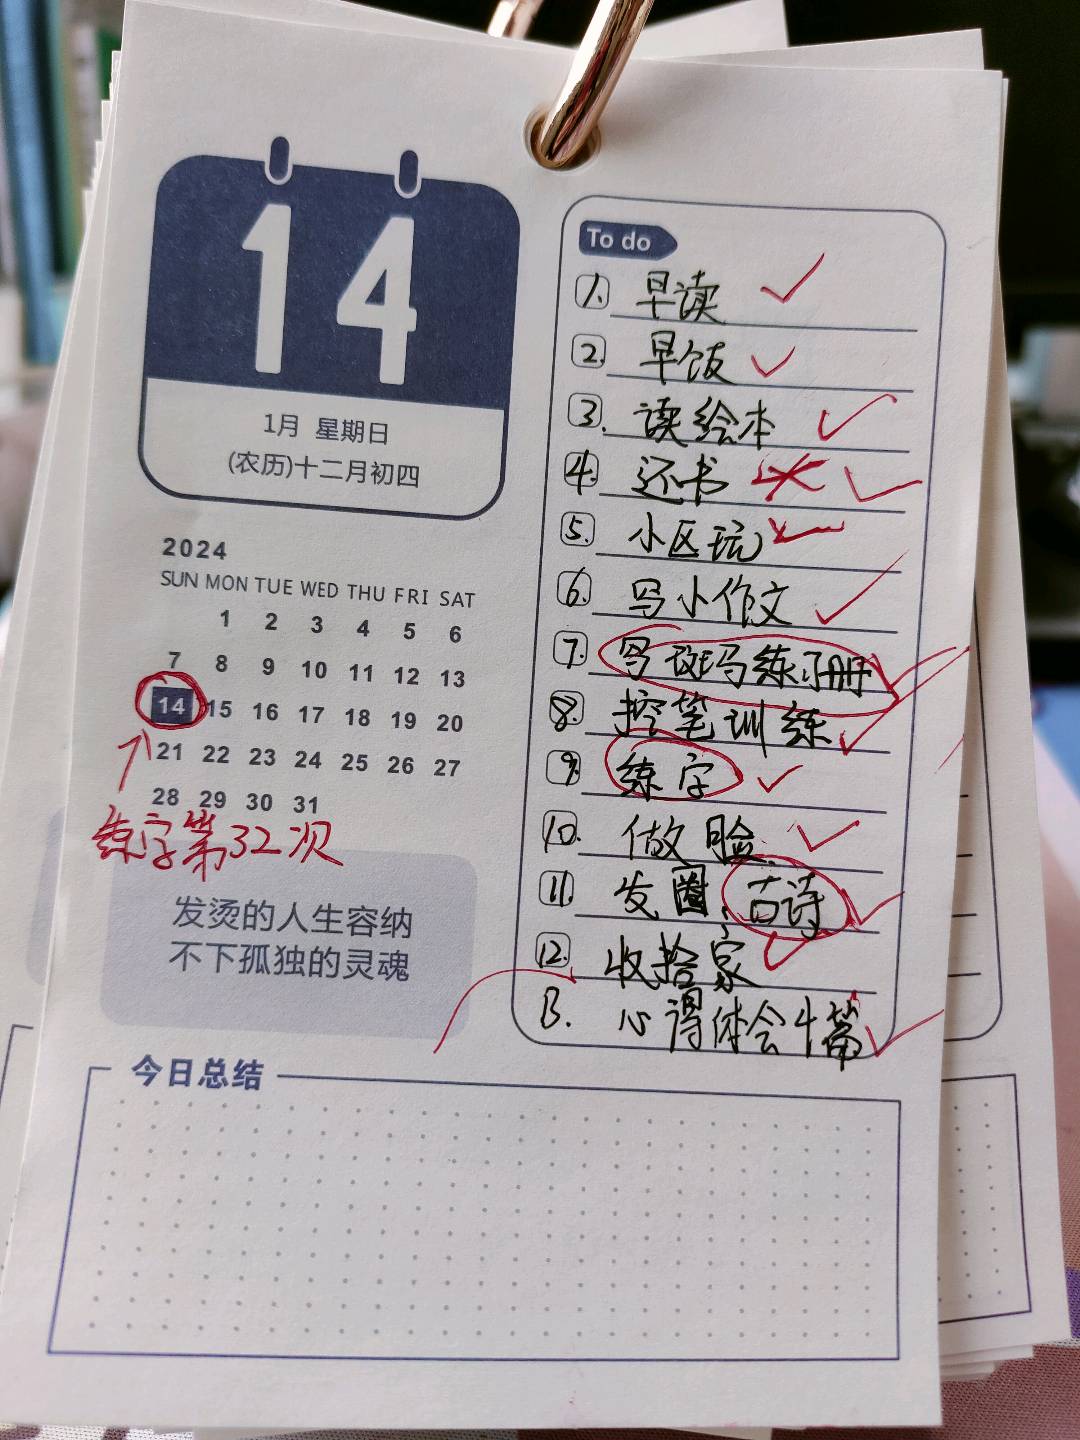 14
1月 星期日
(农历)十二月初四
2024
SUN MON TUE WED THU FRI SAT
1 2 3 4 5 6
7 8 9 10 11 12 13
14 15 16 17 18 19 20
21 22 23 24 25 26 27
28 29 30 31
练字第32次
发烫的人生容纳
不下孤独的灵魂
To do
1. 早读
2. 早饭
3. 读绘本
4. 还书
5. 小区玩
6. 写小作文
7. 写斑马练习册
8. 控笔训练
9. 练字
10. 做脸
11. 发圈,古诗
12. 收拾家
13. 心得体会4篇
今日总结